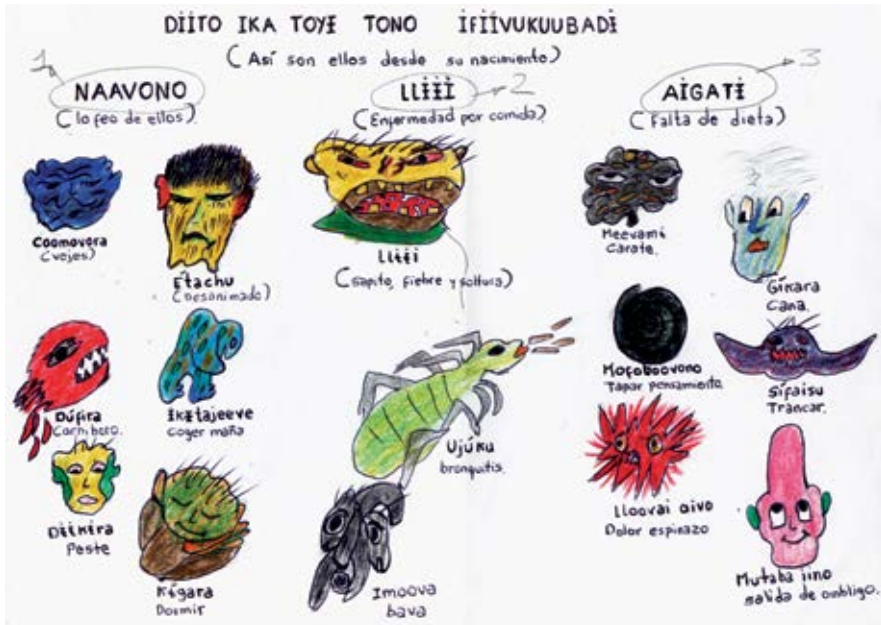 DiiTO IKA TOYɨ TONO iFiiVUKUUBADi
(Así son ellos desde su nacimiento)
1
NAAVONO
(lo feo de ellos)
Coomovora
(vejes)
Étachu
(Desanimado)
Dúfira
Carnicero.
ɨkɨtajeeve
Coger maña
Diikira
Peste
Kígara
Dormir
2
LLɨɨɨ
(Enfermedad por comida)
Llɨɨi
(Sapito, fiebre y soltura)
Ujúku
bronquitis.
Imoova
bava
3
AiGATɨ
(Falta de dieta)
Meevamí
Carate.
Gíkara
Cana.
Mofoboovono
Tapar pensamiento.
Sífaisu
Trancar.
Lloovai aivo
Dolor espinazo
Mutaba iino
salida de ombligo.